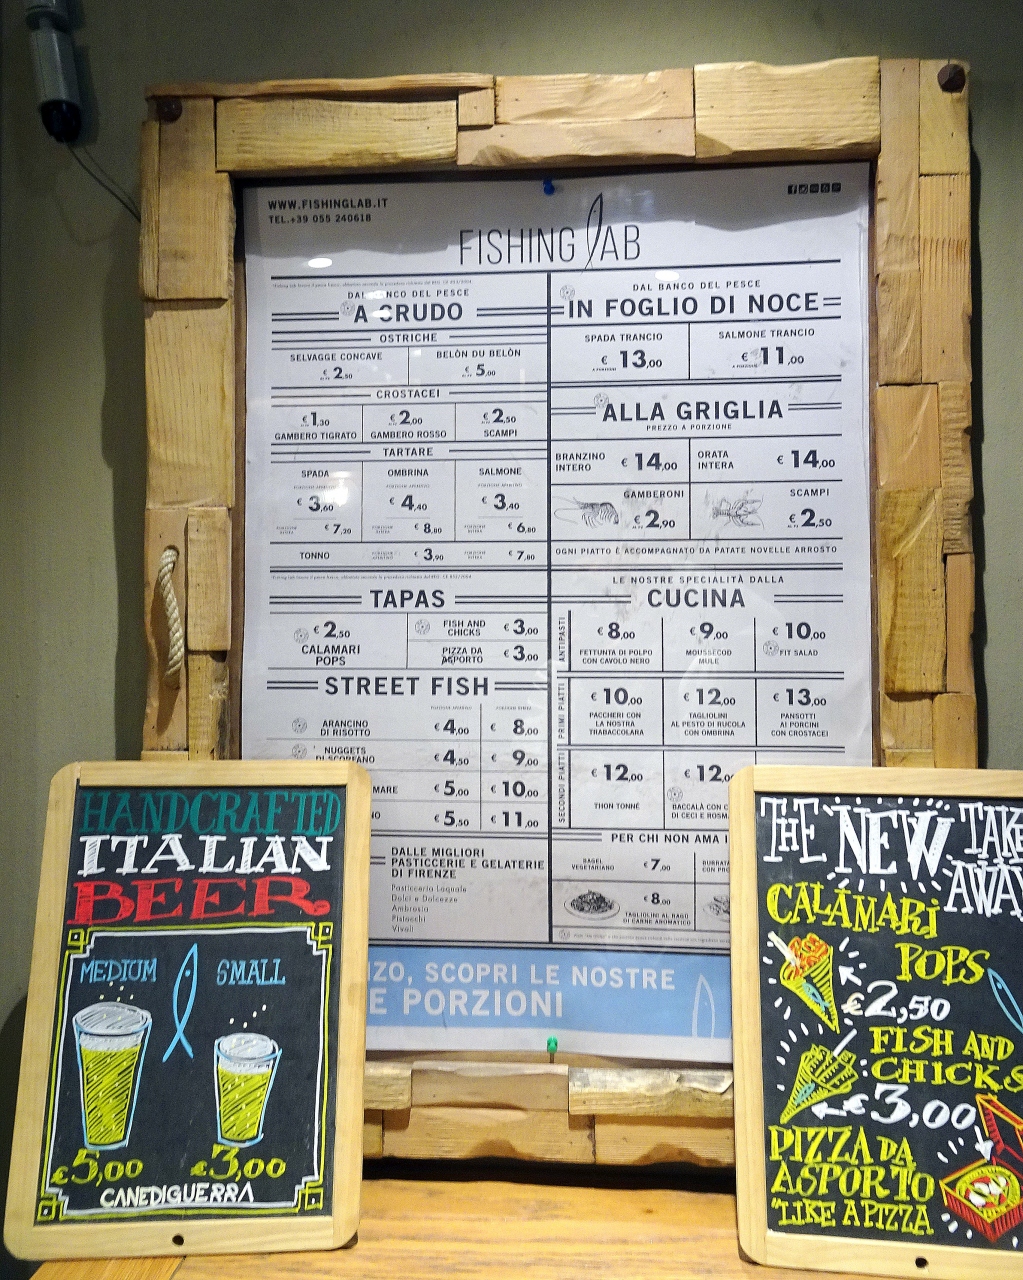 WWW.FISHINGLAB.IT
TEL.+39 055 240618
FISHING LAB
DAL BANCO DEL PESCE
A CRUDO
OSTRICHE
SELVAGGE CONCAVE
€ 2,50
BELÒN DU BELÒN
€ 5,00
CROSTACEI
€ 1,30
GAMBERO TIGRATO
€ 2,00
GAMBERO ROSSO
€ 2,50
SCAMPI
TARTARE
SPADA
€ 3,60
€ 7,20
OMBRINA
€ 4,40
€ 8,80
SALMONE
€ 3,40
€ 6,80
TONNO
€ 3,90
€ 7,80
TAPAS
€ 2,50
CALAMARI
POPS
FISH AND
CHICKS
€ 3,00
PIZZA DA
ASPORTO
€ 3,00
STREET FISH
ARANCINO
DI RISOTTO
€ 4,00
€ 8,00
NUGGETS
€ 4,50
€ 9,00
MARE
€ 5,00
€ 10,00
€ 5,50
€ 11,00
DALLE MIGLIORI
PASTICCERIE E GELATERIE
DI FIRENZE
Pasticceria Loquale
Dolci e Dolcezze
Ambrecia
Pistocchi
Vivoli
DAL BANCO DEL PESCE
IN FOGLIO DI NOCE
SPADA TRANCIO
€ 13,00
SALMONE TRANCIO
€ 11,00
ALLA GRIGLIA
PREZZO A PORZIONE
BRANZINO
INTERO
€ 14,00
ORATA
INTERA
€ 14,00
GAMBERONI
€ 2,90
SCAMPI
€ 2,50
OGNI PIATTO È ACCOMPAGNATO DA PATATE NOVELLE ARROSTO
LE NOSTRE SPECIALITÀ DALLA
CUCINA
ANTIPASTI
€ 8,00
FETTUNTA DI POLPO
CON CAVOLO NERO
€ 9,00
MOUSSECOD
MULE
€ 10,00
FIT SALAD
PRIMI PIATTI
€ 10,00
PACCHERI CON
LA NOSTRA
TRABACCOLARA
€ 12,00
TAGLIOLINI
AL PESTO DI RUCOLA
CON OMBRINA
€ 13,00
PANSOTTI
AI PORCINI
CON CROSTACEI
SECONDI PIATTI
€ 12,00
THON TONNÉ
€ 12,00
BACCALÀ CON C
DI CECI E ROSM
PER CHI NON AMA I
BAGEL
VEGETARIANO
€ 7,00
BURRAT
€ 8,00
TAGLIOLINI AL RAGÙ
DI CARNE AROMATICO
IZO, SCOPRI LE NOSTRE
E PORZIONI
HANDCRAFTED
ITALIAN
BEER
MEDIUM
SMALL
€5,00
€3,00
CANEDIGUERRA
THE NEW TAKE
AWAY
CALAMARI
POPS
€2,50
FISH AND
CHICKS
€3,00
PIZZA DA
ASPORTO
"LIKE A PIZZA